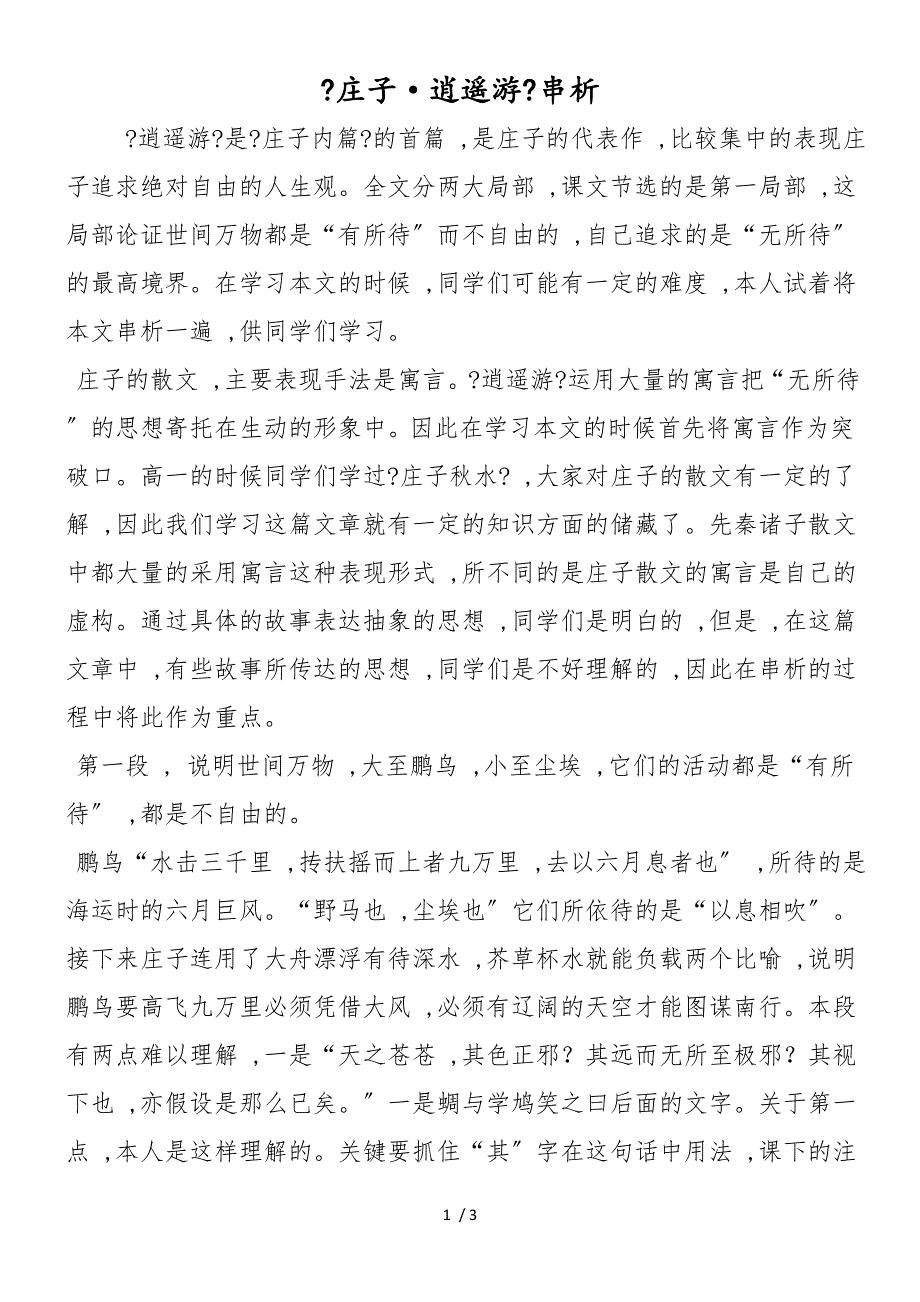 ?庄子·逍遥游?串析
?逍遥游?是?庄子内篇?的首篇 ,是庄子的代表作 ,比较集中的表现庄
子追求绝对自由的人生观。全文分两大局部 ,课文节选的是第一局部 ,这
局部论证世间万物都是“有所待〞而不自由的 ,自己追求的是“无所待〞
的最高境界。在学习本文的时候 ,同学们可能有一定的难度 ,本人试着将
本文串析一遍 ,供同学们学习。
庄子的散文 ,主要表现手法是寓言。?逍遥游?运用大量的寓言把“无所待
〞的思想寄托在生动的形象中。因此在学习本文的时候首先将寓言作为突
破口。高一的时候同学们学过?庄子秋水? ,大家对庄子的散文有一定的了
解 ,因此我们学习这篇文章就有一定的知识方面的储藏了。先秦诸子散文
中都大量的采用寓言这种表现形式 ,所不同的是庄子散文的寓言是自己的
虚构。通过具体的故事表达抽象的思想 ,同学们是明白的 ,但是 ,在这篇
文章中 ,有些故事所传达的思想 ,同学们是不好理解的 ,因此在串析的过
程中将此作为重点。
第一段 , 说明世间万物 ,大至鹏鸟 ,小至尘埃 ,它们的活动都是“有所
待〞 ,都是不自由的。
鹏鸟“水击三千里 ,抟扶摇而上者九万里 ,去以六月息者也〞 ,所待的是
海运时的六月巨风。“野马也 ,尘埃也〞它们所依待的是“以息相吹〞。
接下来庄子连用了大舟漂浮有待深水 ,芥草杯水就能负载两个比喻 ,说明
鹏鸟要高飞九万里必须凭借大风 ,必须有辽阔的天空才能图谋南行。本段
有两点难以理解 ,一是“天之苍苍 ,其色正邪？其远而无所至极邪？其视
下也 ,亦假设是那么已矣。〞一是蜩与学鸠笑之曰后面的文字。关于第一
点 ,本人是这样理解的。关键要抓住“其〞字在这句话中用法 ,课下的注
1 / 3